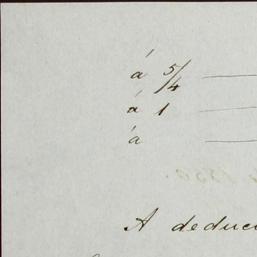 á 5/4
á 1
á
A deduci